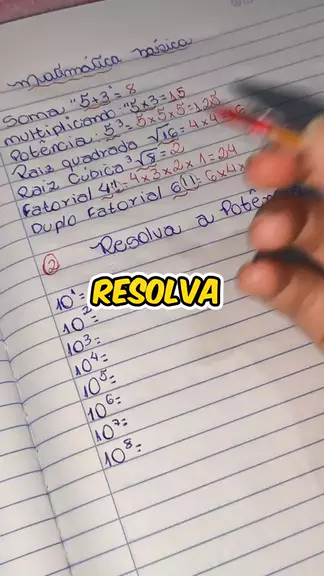 matimática básica
Soma "5+3"= 8
multiplicando: "5+3=15
Potência: 5³= 5x5x5=125
Raiz quadrada √16=4x4
Raiz Cúbica ³√8=2
Fatorial 4!= 4x3x2x1=24
Duplo Fatorial 6!!=6x4x
② Resolva a Potên
RESOLVA
10¹=
10²=
10³=
10⁴=
10⁵=
10⁶=
10⁷=
10⁸=